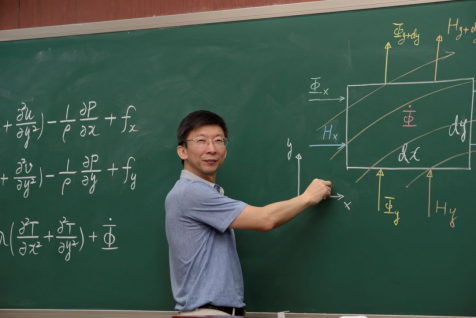 + ∂²u/∂y²) - 1/ρ ∂P/∂x + fx
+ ∂²v/∂y²) - 1/ρ ∂P/∂y + fy
λ(∂²T/∂x² + ∂²T/∂y²) + Φ̇
Φy+dy Hy+dy
Φx
Hx Φ̇ dy
dx
y
x
Φy Hy